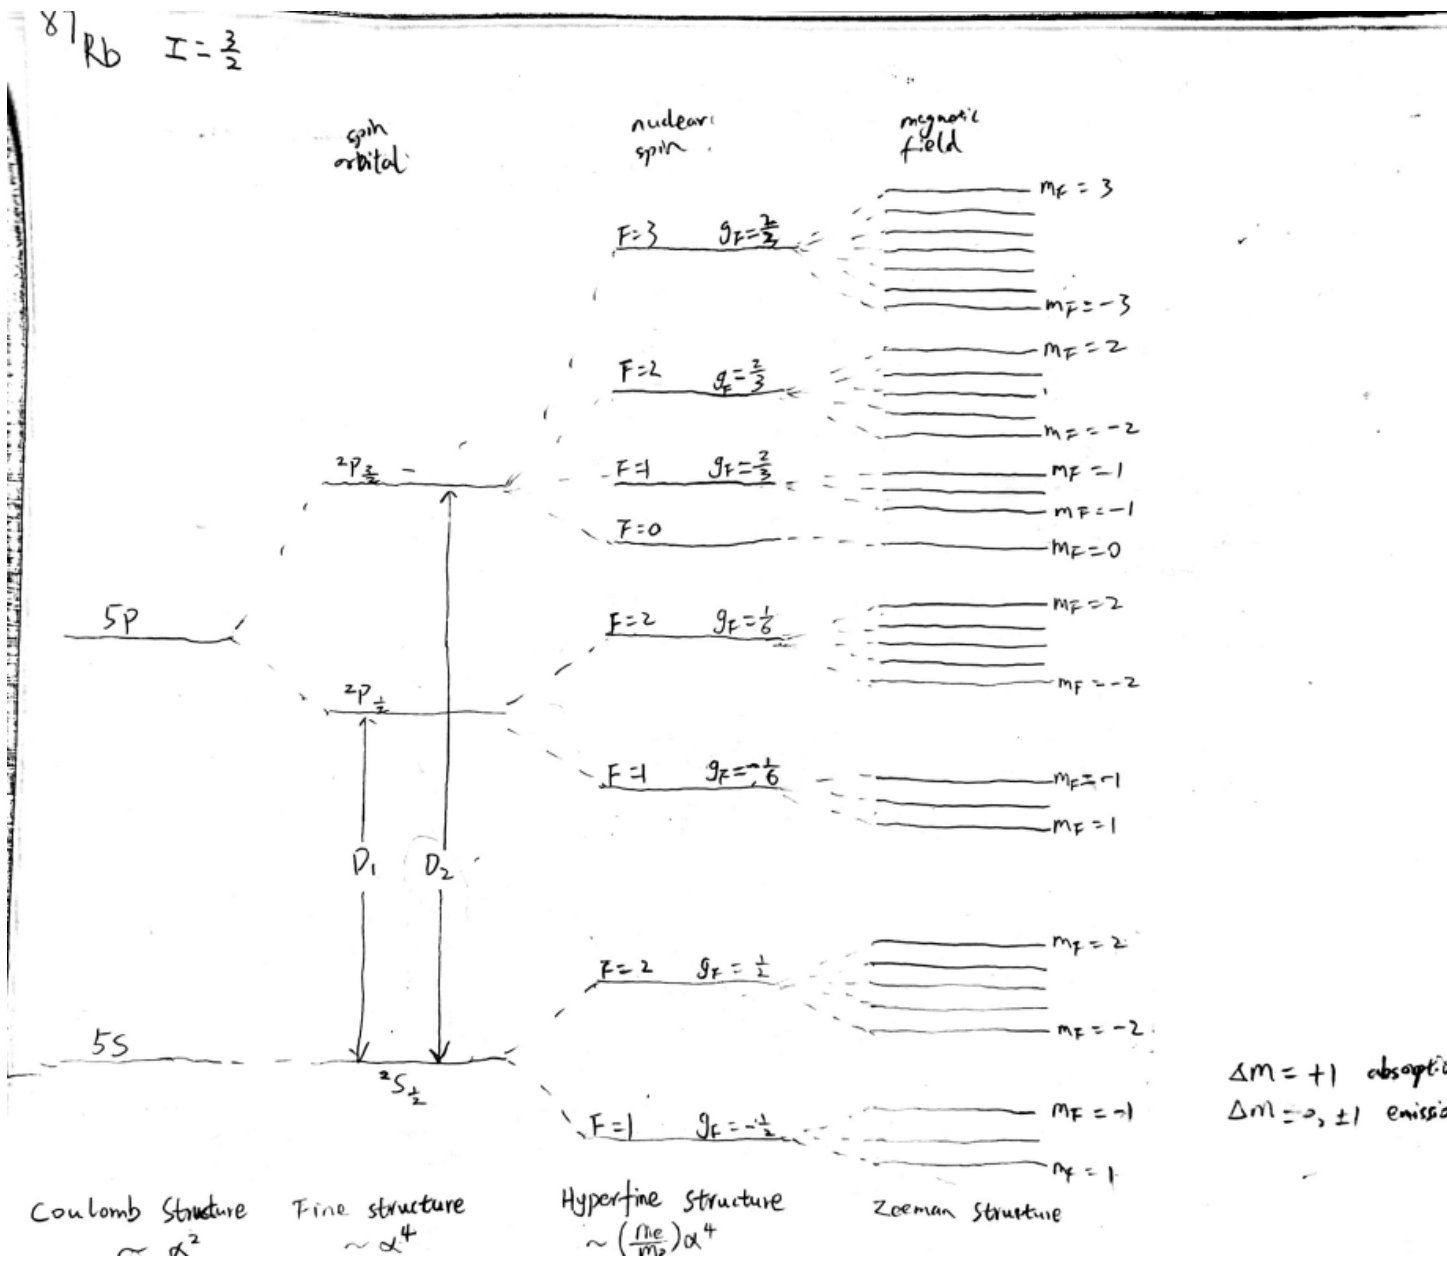 87Rb I = 3/2
spin
orbital
nuclear
spin
magnetic
field
mF = 3
F=3 gF=2/3
mF=-3
mF=2
F=2 gF=2/3
mF=-2
²P3/2
F=1 gF=2/3
mF=1
mF=-1
F=0
mF=0
5P
F=2 gF=1/6
mF=2
mF=-2
²P1/2
F=1 gF=-1/6
mF=-1
mF=1
D1 D2
mF=2
F=2 gF=1/2
mF=-2
5S
²S1/2
Δm = +1
Δm = 0, ±1
F=1 gF=-1/2
mF=-1
mF=1
Coulomb Structure
~ α²
Fine structure
~ α⁴
Hyperfine structure
~ (me/mp)α⁴
Zeeman Structure